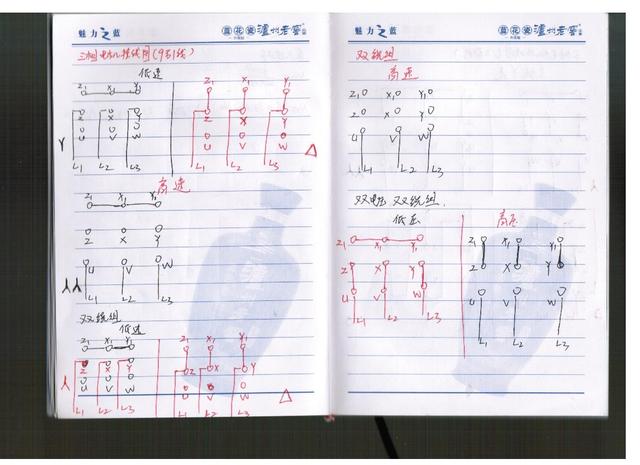 魅力之蓝
三相电机接线图(9引线)
低速
Z1 X1 Y1
Z X Y
U V W
Y
L1 L2 L3
Z1 X1 Y1
Z X Y
U V W
L1 L2 L3
△
高速
Z1 X1 Y1
Z X Y
U V W
L1 L2 L3
双绕组
低速
Z1 X1 Y1
Z X Y
U V W
L1 L2 L3
Z1 X1 Y1
Z X Y
U V W
L1 L2 L3
△
魅力之蓝
泸州老窖
双绕组
高速
Z1 X1 Y1
Z X Y
U V W
L1 L2 L3
双电压 双绕组
低压
Z1 X1 Y1
Z X Y
U V W
L1 L2 L3
高压
Z1 X1 Y1
Z X Y
U V W
L1 L2 L3